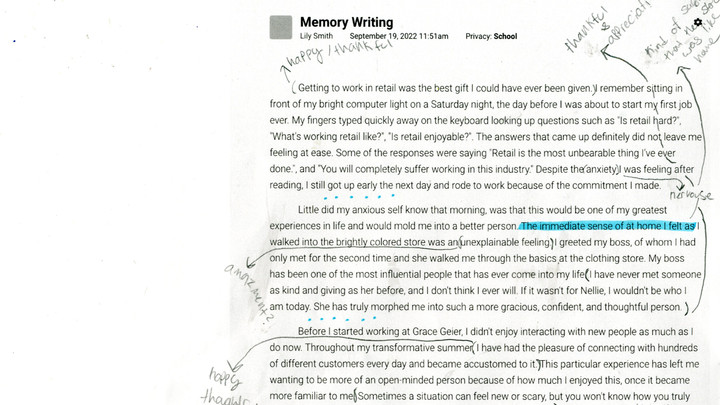 Memory Writing
Lily Smith September 19, 2022 11:51am Privacy: School
happy / thankful
thankful
kind of
that
was like
Getting to work in retail was the best gift I could have ever been given. I remember sitting in
front of my bright computer light on a Saturday night, the day before I was about to start my first job
ever. My fingers typed quickly away on the keyboard looking up questions such as "Is retail hard?",
"What's working retail like?", "Is retail enjoyable?". The answers that came up definitely did not leave me
feeling at ease. Some of the responses were saying "Retail is the most unbearable thing I've ever
done.", and "You will completely suffer working in this industry." Despite the anxiety I was feeling after
reading, I still got up early the next day and rode to work because of the commitment I made.
nervouse
Little did my anxious self know that morning, was that this would be one of my greatest
experiences in life and would mold me into a better person. The immediate sense of at home I felt as I
walked into the brightly colored store was an unexplainable feeling. I greeted my boss, of whom I had
only met for the second time and she walked me through the basics at the clothing store. My boss
has been one of the most influential people that has ever come into my life. I have never met someone
as kind and giving as her before, and I don't think I ever will. If it wasn't for Nellie, I wouldn't be who I
am today. She has truly morphed me into such a more gracious, confident, and thoughtful person.
Before I started working at Grace Geier, I didn't enjoy interacting with new people as much as I
do now. Throughout my transformative summer, I have had the pleasure of connecting with hundreds
of different customers every day and became accustomed to it. This particular experience has left me
happy
wanting to be more of an open-minded person because of how much I enjoyed this, once it became
more familiar to me. Sometimes a situation can feel new or scary, but you won't know how you truly